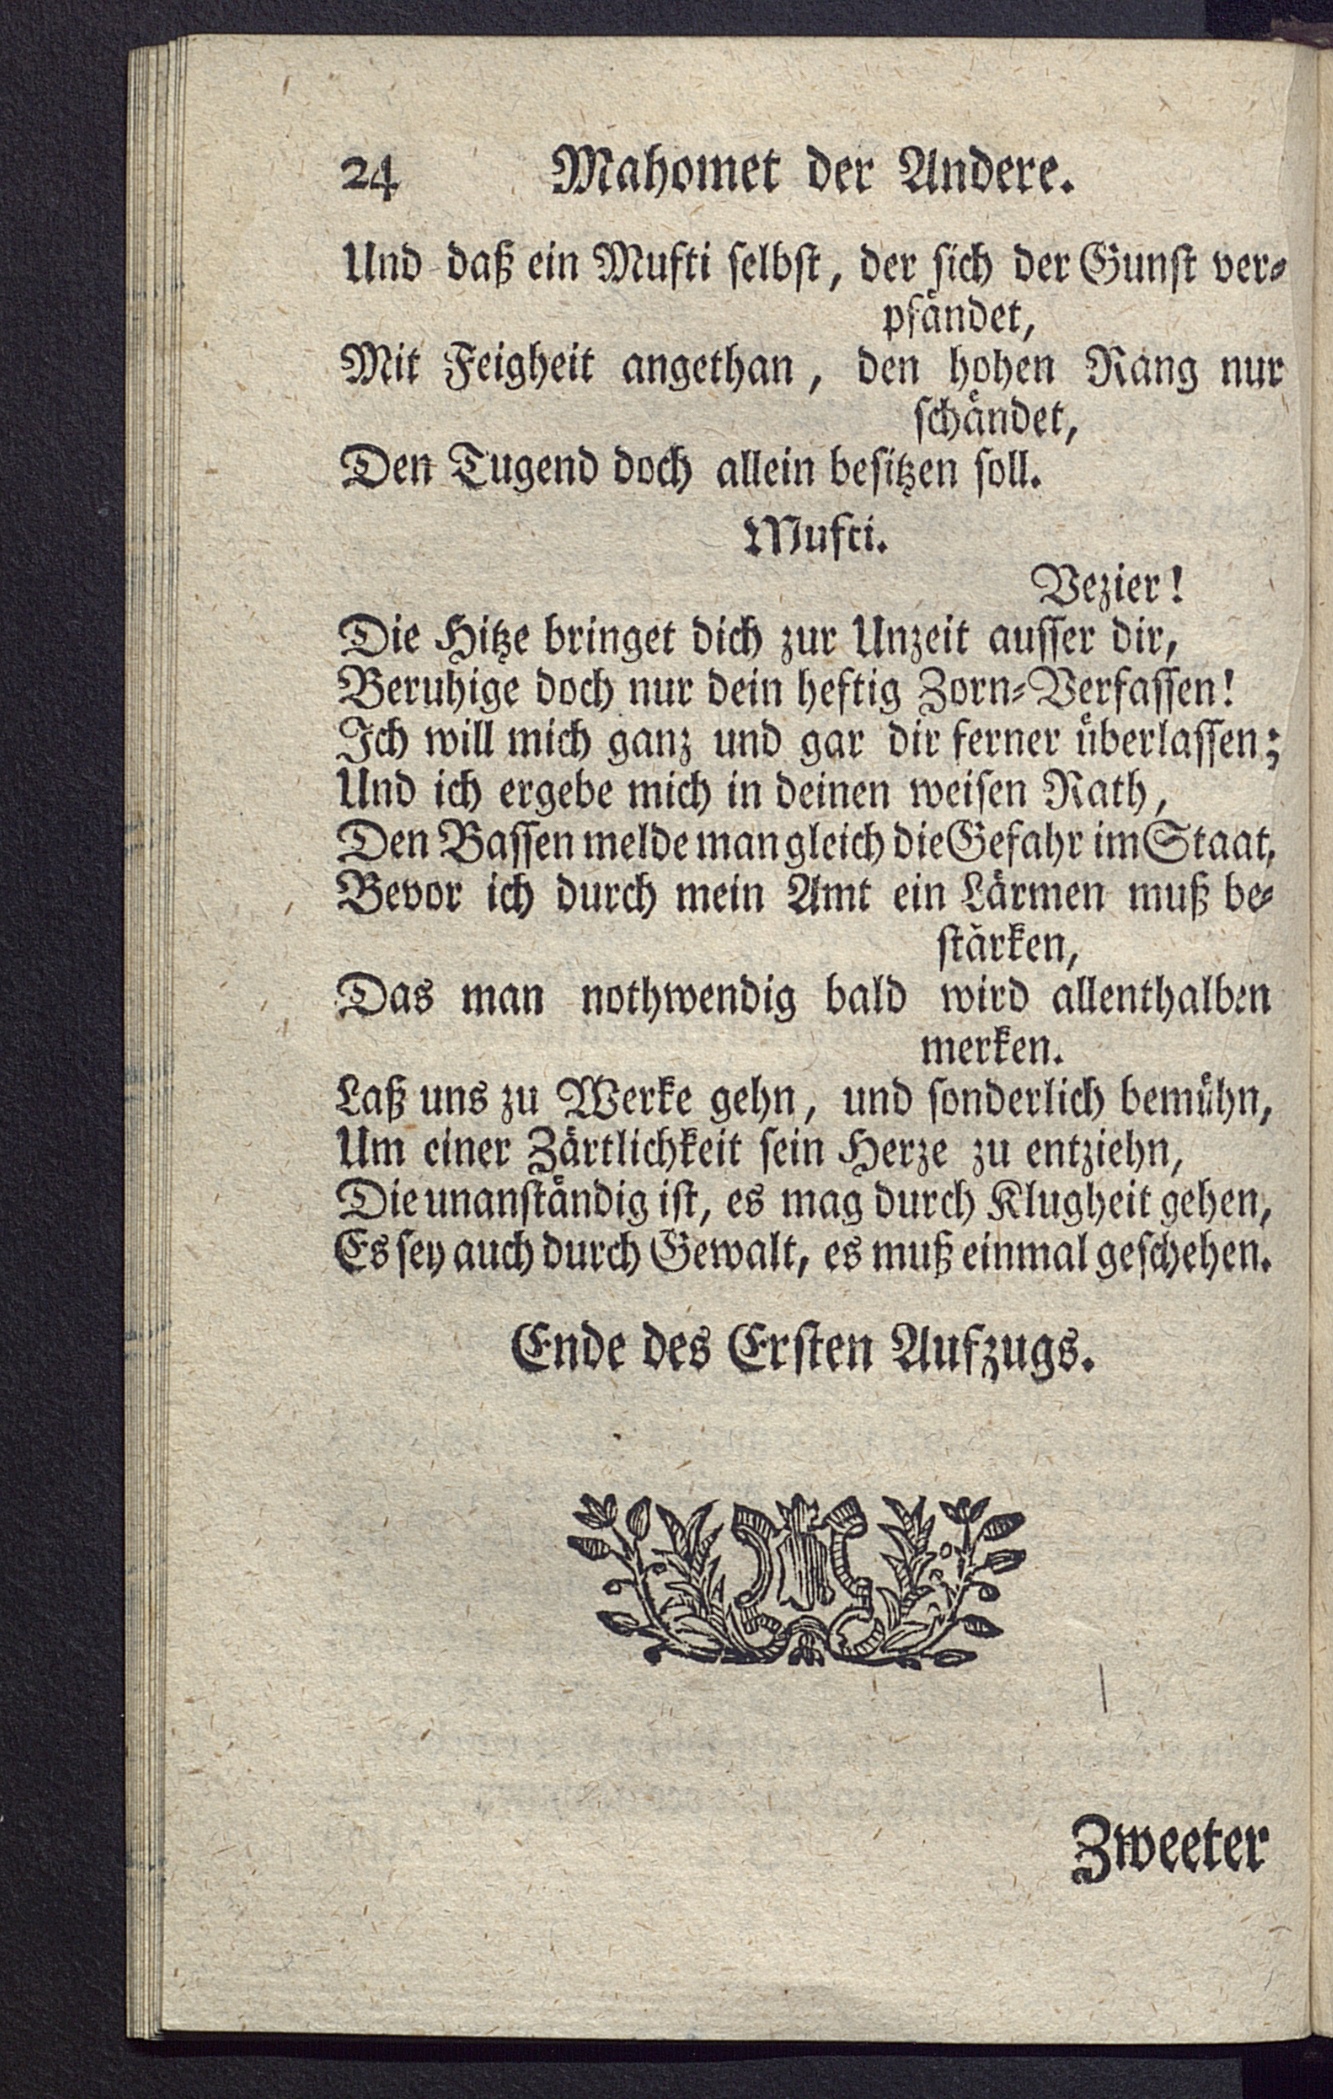 24 Mahomet der Andere.
Und daß ein Mufti selbst, der sich der Gunst ver-
pfändet,
Mit Feigheit angethan, den hohen Rang nur
schändet,
Den Tugend doch allein besitzen soll.
Mufti.
Vezier!
Die Hitze bringet dich zur Unzeit ausser dir,
Beruhige doch nur dein heftig Zorn-Verfassen!
Ich will mich ganz und gar dir ferner überlassen;
Und ich ergebe mich in deinen weisen Rath,
Den Bassen melde man gleich die Gefahr im Staat,
Bevor ich durch mein Amt ein Lärmen muß be-
stärken,
Das man nothwendig bald wird allenthalben
merken.
Laß uns zu Werke gehn, und sonderlich bemühn,
Um einer Zärtlichkeit sein Herze zu entziehn,
Die unanständig ist, es mag durch Klugheit gehen,
Es sey auch durch Gewalt, es muß einmal geschehen.
Ende des Ersten Aufzugs.
Zweeter